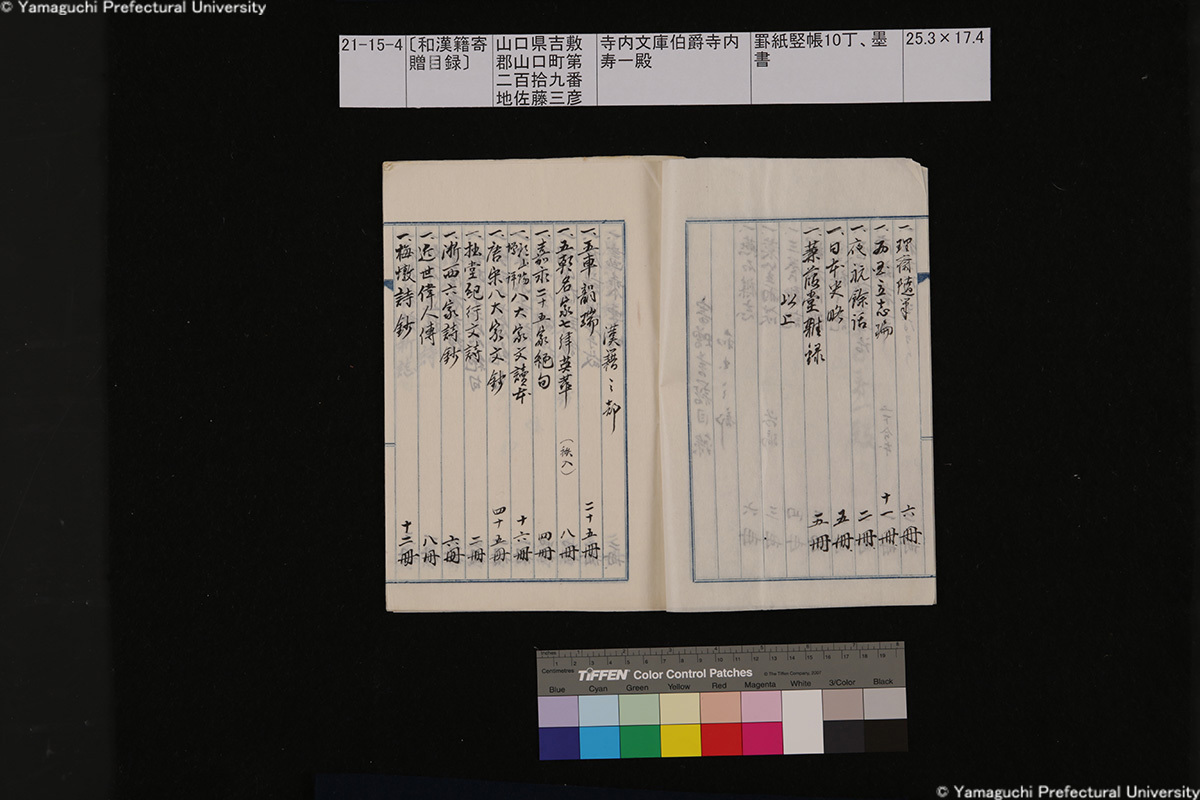 © Yamaguchi Prefectural University
21-15-4
〔和漢籍寄
贈目録〕
山口県吉敷
郡山口町第
二百拾九番
地佐藤三彦
寺内文庫伯爵寺内
寿一殿
罫紙竪帳10丁、墨
書
25.3×17.4
一、理斎随筆 六冊
一、 立志論 十一冊
一、夜航餘話 二冊
一、日本史略 五冊
一、薬 堂雑録 五冊
以上
漢籍之部
一、五車韻瑞 二十五冊
一、五朝名家七律英華 (帙入) 八冊
一、嘉永二十五家絶句 四冊
一、 八大家文讀本 十六冊
一、唐宋八大家文鈔 四十五冊
一、拙堂紀行文詩 二冊
一、浙西六家詩鈔 六冊
一、近世偉人傳 八冊
一、梅墩詩鈔 十二冊
Inches
Centimetres
TIFFEN Color Control Patches
© The Tiffen Company, 2007
Blue Cyan Green Yellow Red Magenta White 3/Color Black
© Yamaguchi Prefectural University